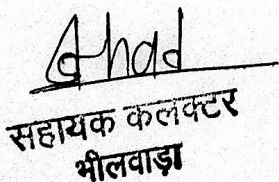 सहायक कलक्टर
भीलवाड़ा